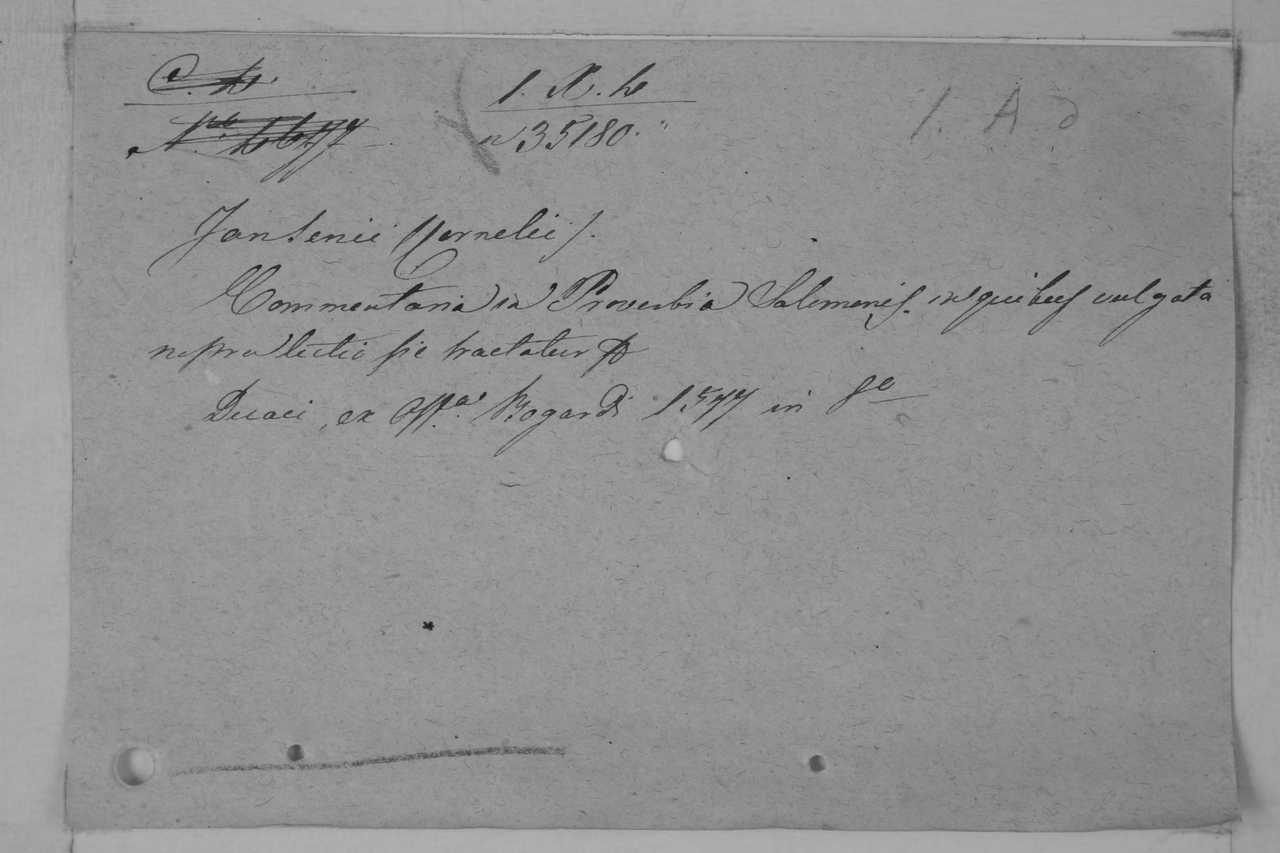 1. X. h
n 35180.
1. A d
Jansenii Cornelii.
Commentaria in Proverbia Salomonis. in quibus vulgata
nostra lectio sic tractatur
Duaci, ex Offa. Bogardi 1577 in 8o